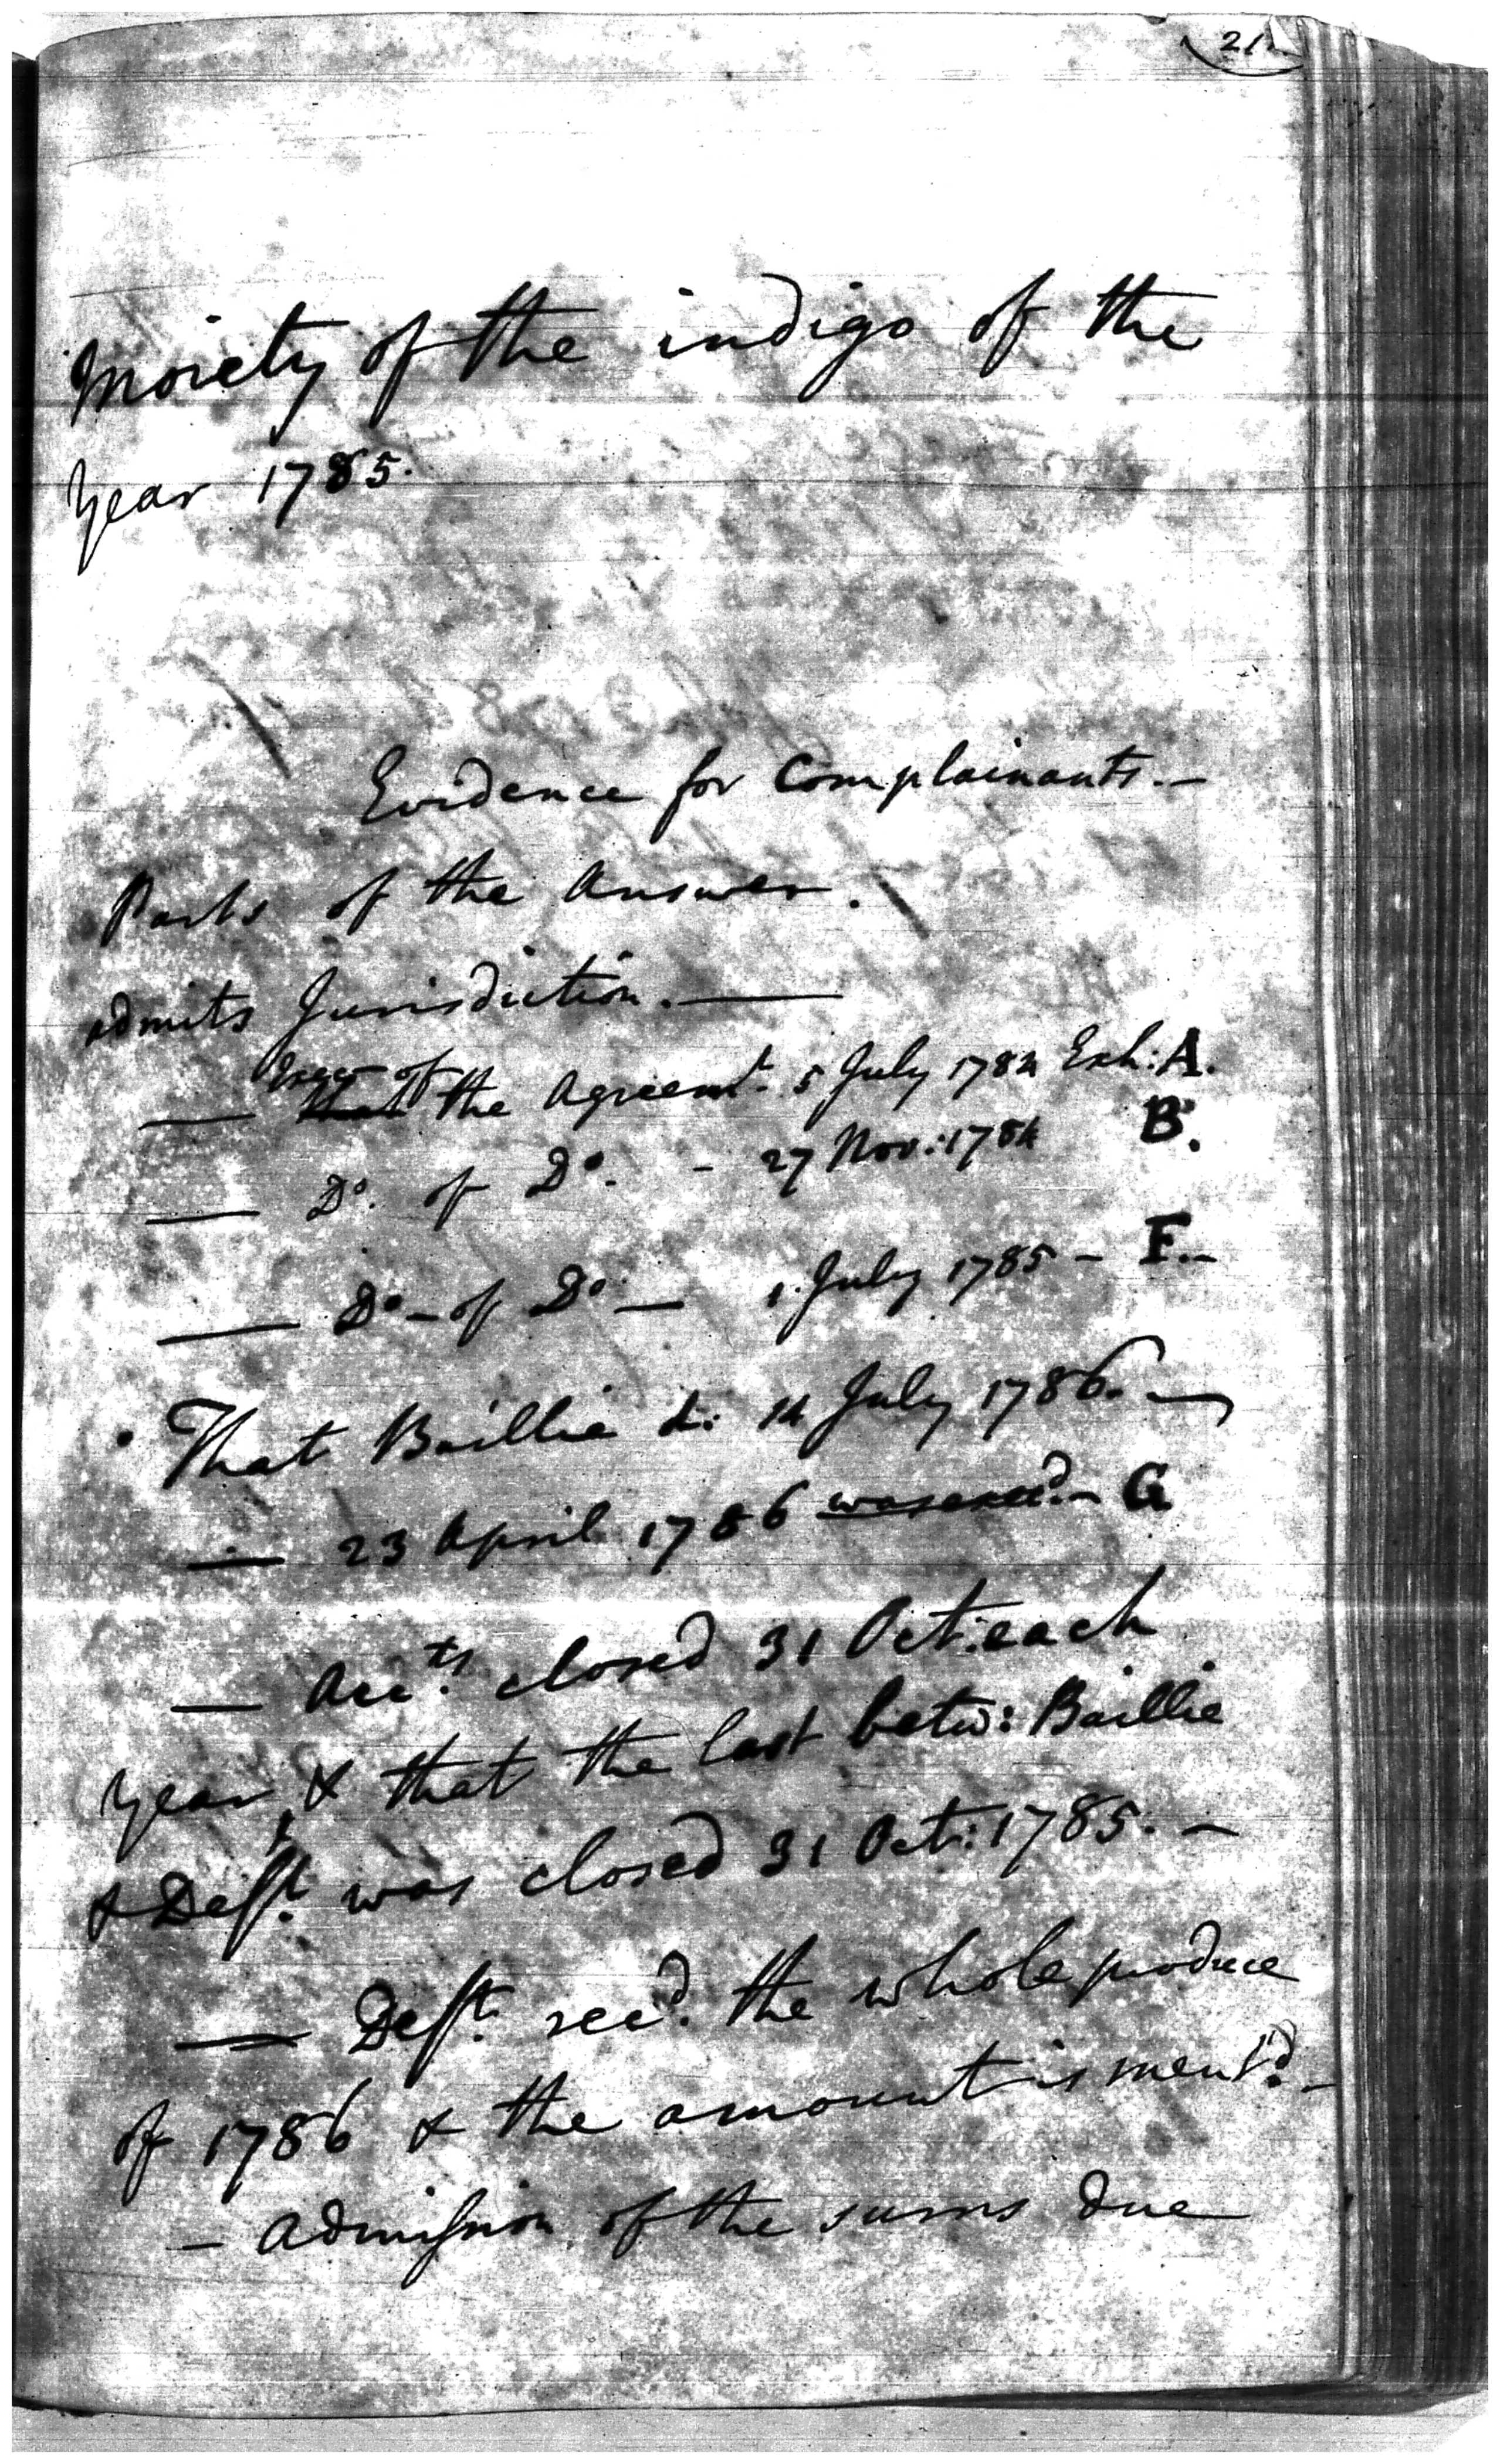 21
Moiety of the indigo of the
Year 1785.
Evidence for Complainants.—
Parts of the Answer.
admits Jurisdiction.—
Exec.on of
— that the Agreemt. 5 July 1784 Exh: A.
— Do. of Do. - 27 Nov: 1784 B.
— Do - of Do — 1. July 1785 - F.-
That Baillie d: 14 July 1786. —
— 23 April 1786 was exed. - G
— Accts. closed 31 Oct: each
Year, & that the last betw: Baillie
& Deft. was closed 31 Oct: 1785. —
— Deft. recd. the whole produce
of 1786 & the amount is mentd. -
— Admission of the sums due